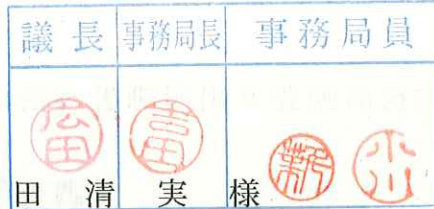 議長 事務局長 事務局員
広田 吉田 新 小川
田 清 実 様